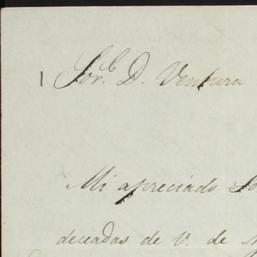 Sor. D. Ventura
Mi apreciado
deceadas de V. de